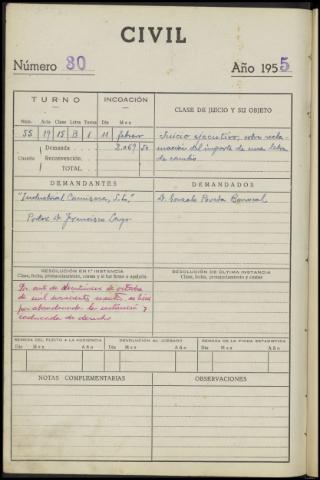 CIVIL
Número 80 Año 1955
TURNO INCOACIÓN CLASE DE JUICIO Y SU OBJETO
Núm. Acta Clase Letra Tomo Día Mes
55 19 15 B 1 11 febrero
Juicio ejecutivo, sobre recla-
mación del importe de una letra
de cambio
Demanda 2.069,50
Cuantía Reconvención.
TOTAL
DEMANDANTES DEMANDADOS
"Industrial Camisera, S.L."
Podor D. Francisco
D. Gonzalo
RESOLUCIÓN EN 1ª INSTANCIA RESOLUCIÓN DE ÚLTIMA INSTANCIA
Clase, fecha, pronunciamiento, costas y si fué firme o apelada
Clase, fecha, pronunciamiento y costas
Por auto de diecinueve de octubre
de mil novecientos sesenta, se tiene
por abandonada la instancia y
caducada de derecho
REMESA DEL PLEITO A LA AUDIENCIA DEVOLUCIÓN AL JUZGADO REMESA DE LA FICHA ESTADÍSTICA
Día Mes Año Día Mes Año Día Mes Año
NOTAS COMPLEMENTARIAS OBSERVACIONES